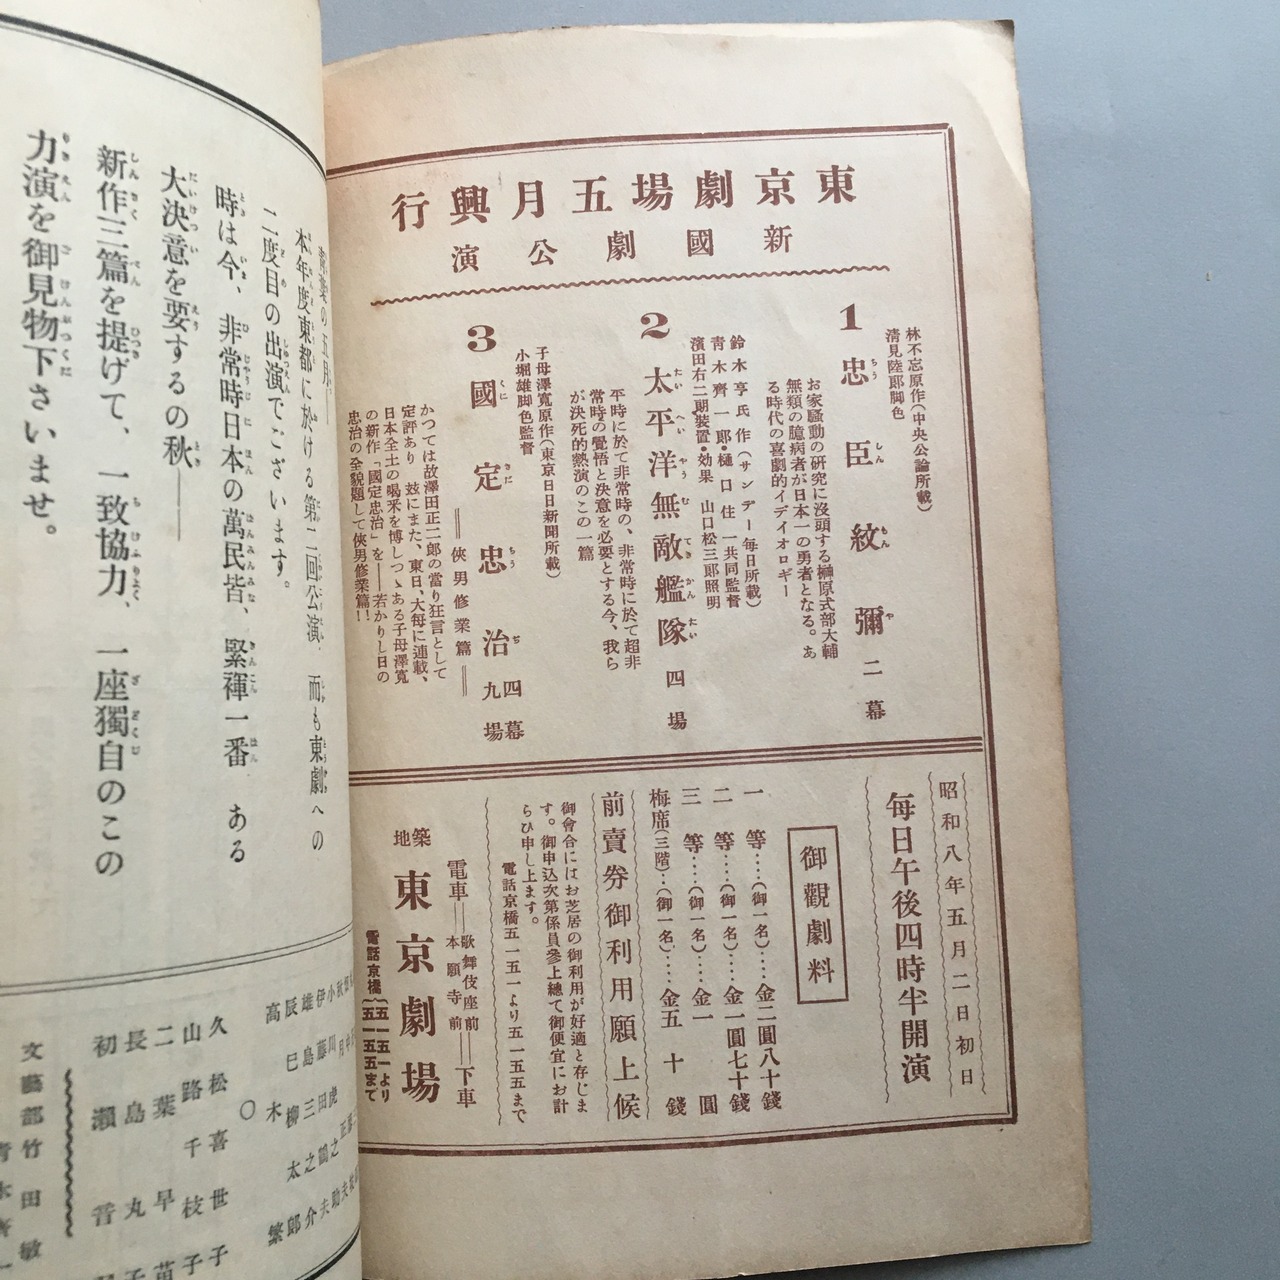 東京劇場五月興行
新國劇公演
林不忘原作(中央公論所載)
清見陸郎脚色
1 忠臣紋彌 二幕
お家騷動の研究に沒頭する榊原式部大輔
無類の臆病者が日本一の勇者となる。あ
る時代の喜劇的イデイオロギー
鈴木亨氏作(サンデー每日所載)
靑木齊一郎・樋口住一共同監督
濱田右二朗裝置・効果 山口松三郎照明
2 太平洋無敵艦隊 四場
平時に於て非常時の、非常時に於て超非
常時の覺悟と決意を必要とする今、我ら
が決死的熱演のこの一篇
子母澤寬原作(東京日日新聞所載)
小堀雄脚色監督
3 國定忠治 四幕九場
═俠男修業篇═
かつては故澤田正二郎の當り狂言として
定評あり 玆にまた、東日、大每に連載、
日本全土の喝釆を博しつゝある子母澤寬
の新作「國定忠治」を━若かりし日の
忠治の全貌題して俠男修業篇!!
昭和八年五月二日初日
每日午後四時半開演
御觀劇料
一等‥‥(御一名)‥‥金二圓八十錢
二等‥‥(御一名)‥‥金一圓七十錢
三等‥‥(御一名)‥‥金一圓
梅席(三階)‥(御一名)‥‥金五十錢
前賣券御利用願上候
御會合にはお芝居の御利用が好適と存じま
す。御申込次第係員參上總て御便宜にお計
らひ申し上ます。
電話京橋五一五一より五一五五まで
電車═歌舞伎座前 本願寺前═下車
築地 東京劇場
電話京橋(五一五一より五一五五まで
の五月━
本年度東都に於ける第二回公演、而も東劇への
二度目の出演でございます。
時は今、非常時日本の萬民皆、緊褌一番 ある
大決意を要するの秋━
新作三篇を提げて、一致協力、一座獨自のこの
力演を御見物下さいませ。
伊藤田鶴之助
雄島三之介
辰巳柳太郎
高木繁
〇
久松喜世子
山路千枝子
二葉早苗
長島丸子
初瀨
文藝部 竹田敏